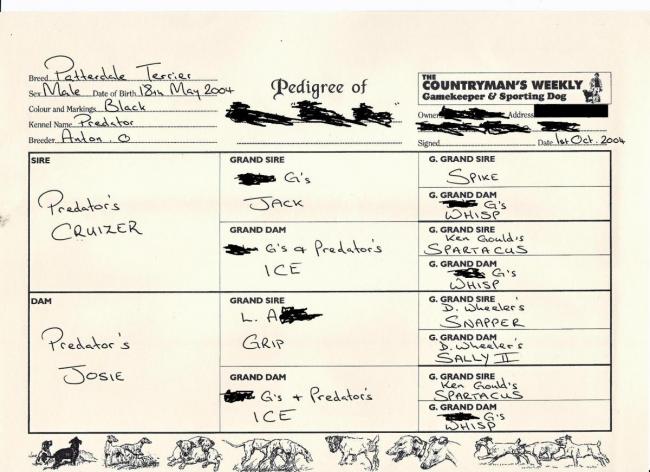 Breed Patterdale Terrier
Sex Male Date of Birth 18th May 2004
Colour and Markings Black
Kennel Name Predator
Breeder Anton. O
Pedigree of
THE COUNTRYMAN'S WEEKLY
Gamekeeper & Sporting Dog
Owner Address
Signed Date 1st Oct. 2004
SIRE
Predator's
CRUIZER
GRAND SIRE
G's
JACK
GRAND DAM
G's + Predator's
ICE
G. GRAND SIRE
SPIKE
G. GRAND DAM
G's
WHISP
G. GRAND SIRE
Ken Gould's
SPARTACUS
G. GRAND DAM
G's
WHISP
DAM
Predator's
JOSIE
GRAND SIRE
L. A
GRIP
GRAND DAM
G's + Predator's
ICE
G. GRAND SIRE
D. Wheeler's
SNAPPER
G. GRAND DAM
D. Wheeler's
SALLY II
G. GRAND SIRE
Ken Gould's
SPARTACUS
G. GRAND DAM
G's
WHISP